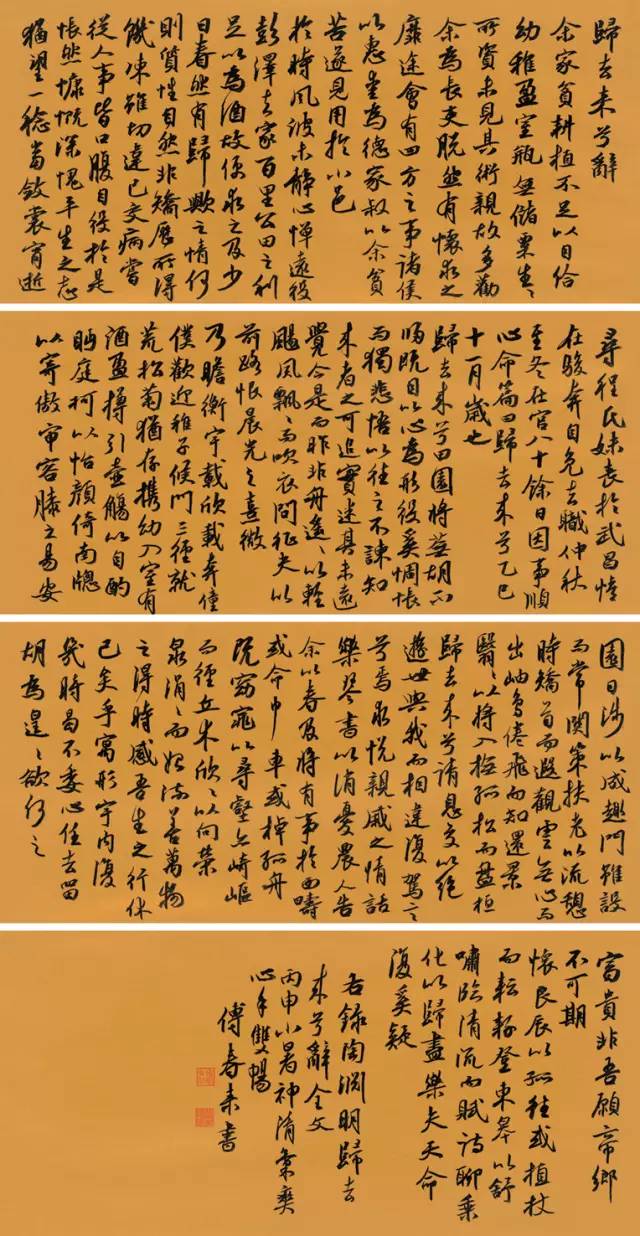 歸去來兮辭
余家貧耕植不足以自給
幼稚盈室瓶無儲粟生〻
所資未見其術親故多勸
余為長吏脫然有懷求之
靡途會有四方之事諸侯
以惠愛為德家叔以余貧
苦遂見用於小邑
於時風波未靜心憚遠役
彭澤去家百里公田之利
足以為酒故便求之及少
日眷然有歸歟之情何
則質性自然非矯厲所得
飢凍雖切違己交病嘗
從人事皆口腹自役於是
悵然慷慨深愧平生之志
猶望一稔當斂裳宵逝
尋程氏妹喪於武昌情
在駿奔自免去職仲秋
至冬在官八十餘日因事順
心命篇曰歸去來兮乙巳
十一月歲也
歸去來兮田園將蕪胡不
歸既自以心為形役奚惆悵
而獨悲悟以往之不諫知
來者之可追實迷其未遠
覺今是而昨非舟遙〻以輕
颺風飄〻而吹衣問征夫以
前路恨晨光之熹微
乃瞻衡宇載欣載奔僮
僕歡迎稚子候門三徑就
荒松菊猶存攜幼入室有
酒盈樽引壺觴以自酌
眄庭柯以怡顏倚南牕
以寄傲審容膝之易安
園日涉以成趣門雖設
而常関策扶老以流憩
時矯首而遐觀雲無心而
出岫鳥倦飛而知還景
翳〻以將入撫孤松而盤桓
歸去來兮請息交以絕
遊世與我而相違復駕言
兮焉求悅親戚之情話
樂琴書以消憂農人告
余以春及將有事於西疇
或命巾車或棹孤舟
既窈窕以尋壑亦崎嶇
而經丘木欣〻以向榮
泉涓〻而始流善萬物
之得時感吾生之行休
已矣乎寓形宇內復
幾時曷不委心任去留
胡為遑〻欲何之
富貴非吾願帝鄉
不可期
懷良辰以孤往或植杖
而耘耔登東皋以舒
嘯臨清流而賦詩聊乘
化以歸盡樂夫天命
復奚疑
右錄陶淵明歸去
來兮辭全文
丙申小暑神清氣爽
心手雙暢
傅春來書